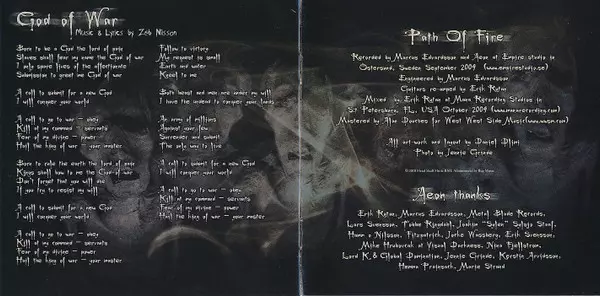 God of War
Music & Lyrics by Zeb Nilsson
Born to be a God the lord of
Slaves shall fear my name the God of war
I only spare lives of the
Submission to greet me God of war
A call to submit for a new God
I will conquer your world
A call to go to war - obey
Kill at my command - servants
Fear of my divine - power
Hail the king of war - your master
Born to rule the earth the lord of
Kings shall bow to me the God of war
Don't forget that you will die
If you try to resist my will
A call to submit for a new God
I will conquer your world
A call to go to war - obey
Kill at my command - servants
Fear of my divine - power
Hail the king of war - your master
Follow to victory
My request is small
Earth and water
Kneel to me
Both beast and man are under my will
I have the
to conquer your lands
An army of millions
Against your few
Surrender and submit
The only way to live
A call to submit for a new God
I will conquer your world
A call to go to war - obey
Kill at my command - servants
Fear of my divine - power
Hail the king of war - your master
Path Of Fire
Recorded by Marcus Edvardsson and Aeon at Empire studio in
Ostersund, Sweden September 2009 (www.empirestudio.se)
Engineered by Marcus Edvardsson
Guitars re-amped by Erik Rutan
Mixed by Erik Rutan at Mana Recording Studios in
St. Petersburg, FL, USA October 2009 (www.manarecording.com)
Mastered by Alan Douches for West West Side Music
All art work and layout by Daniel
Photo by Jennie
Aeon thanks
Erik Rutan, Marcus Edvardsson, Metal Blade Records,
Lars Svensson,
Hanna Nilsson, Fitzpatrick,
Erik Svensson,
Mike Hrubovcak at Visual Darkness, Nico
Lord K & Global Domination, Jennie
Kerstin Arvidsson,
Marie Strand